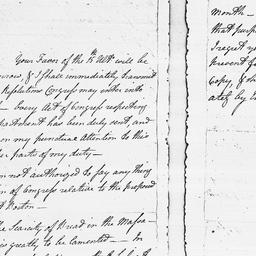 Your Favor of the 7th Ult. will be
orrow, & I shall immediately transmit
Resolutions Congress may enter into
Every Act of Congress respecting
partment has been duly sent and
on my punctual Attention to this
er parts of my duty —
m not authorized to say any thing
on of Congress relative to the proposed
t Boston —
he Scarcity of Bread in the Massa-
is greatly to be lamented — In
month —
that purp
I regret yo
prevent f
Copy, & sh
ately by E